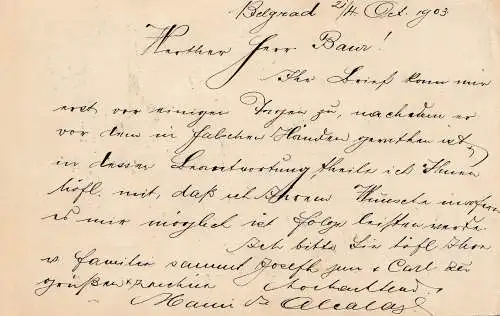 Belgrad 21/4 Oct. 1903
Werther Herr Baur!
Ihr Brief kam mir
erst vor einigen Tagen zu, nachdem er
vor dem in falschen Händen gerathen ist,
in dessen Beantwortung theile ich Ihnen
höfl. mit, daß ich Ihrem Wunsche insofern
es mir möglich ist folge leisten werde
Ich bitte Sie höfl Ihre
w familie sammt Joseph jun & Carl zu
grüßen & zeichne Hochachtend
de Alcalay